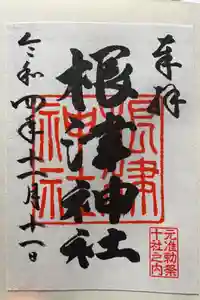 奉拝
根津神社
根津神社
元准勅祭
十社之内
令和四年十一月十一日